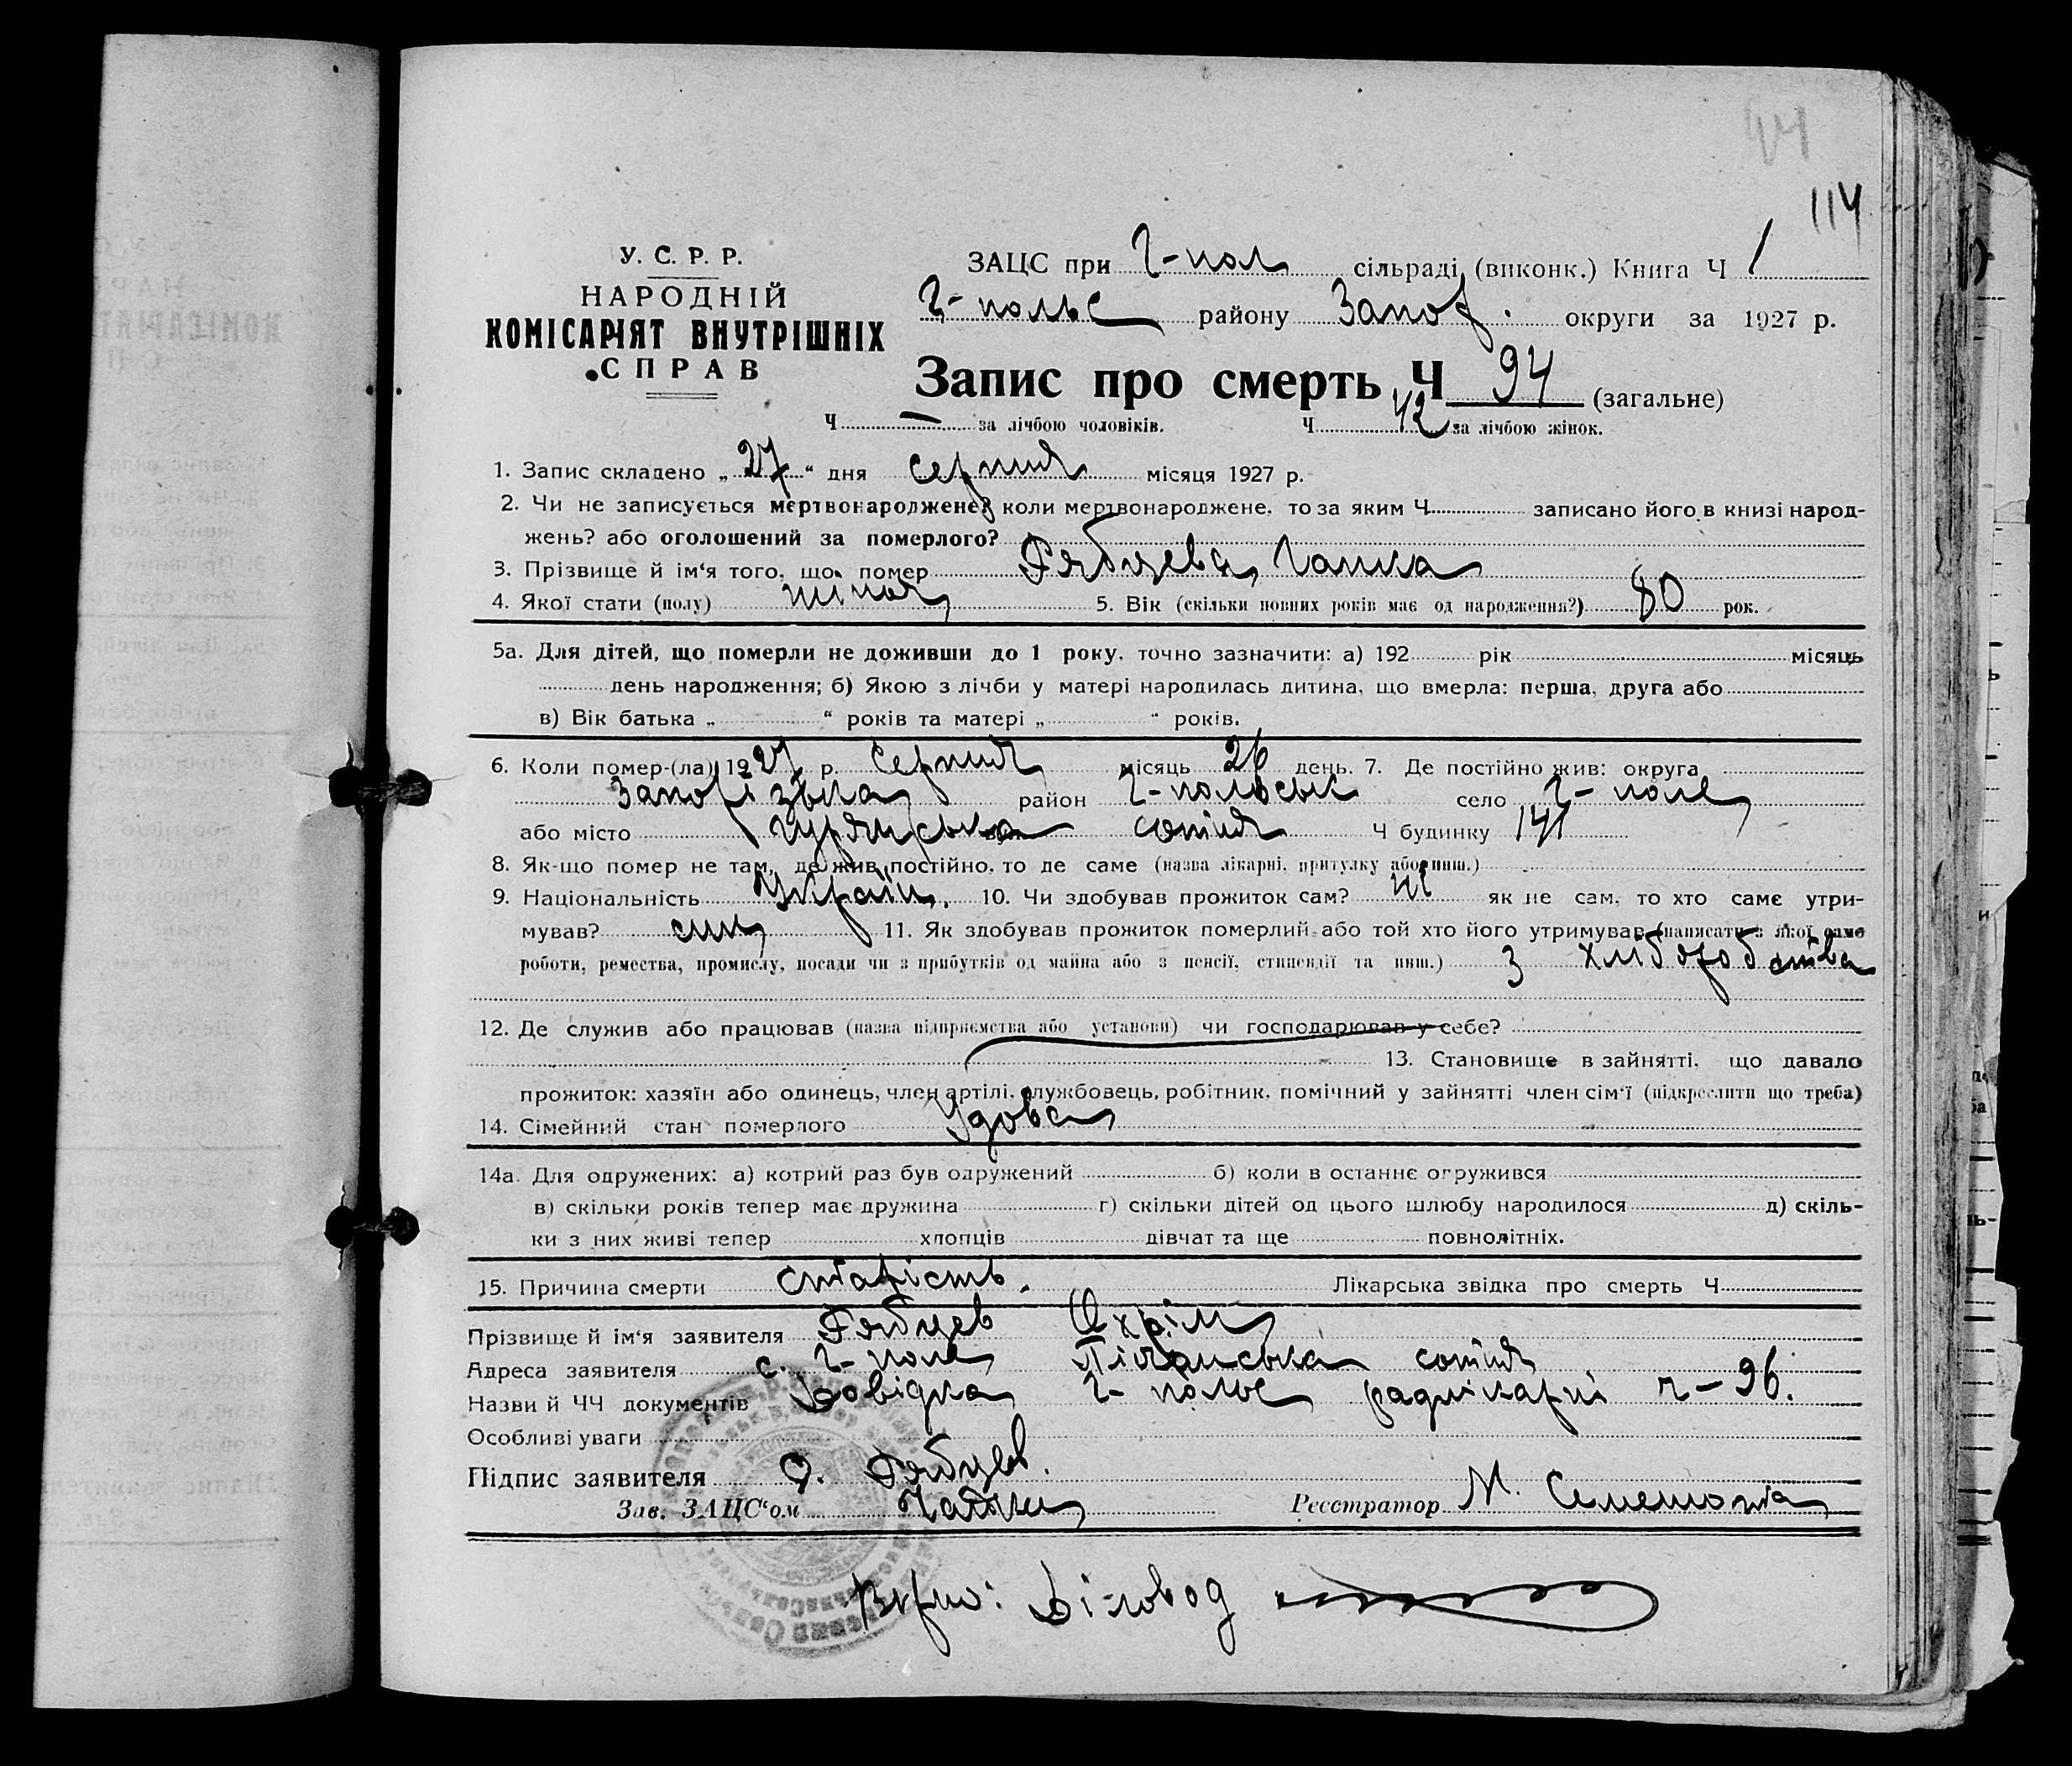 44
114
У. С. Р. Р.
НАРОДНІЙ
КОМІСАРІЯТ ВНУТРІШНІХ
СПРАВ
ЗАЦС при Г-пол сільраді (виконк.) Книга Ч 1
Г-польс району Запор. округи за 1927 р.
Запис про смерть Ч 94 (загальне)
Ч — за лічбою чоловіків. Ч 42 за лічбою жінок.
1. Запис складено „ 27 “ дня серпня місяця 1927 р.
2. Чи не записується мертвонароджене? коли мертвонароджене, то за яким Ч записано його в книзі народ-
жень? або оголошений за померлого?
3. Прізвище й ім'я того, що помер Рябцева Ганна
4. Якої стати (полу) жіноч 5. Вік (скільки повних років має од народження?) 80 рок.
5а. Для дітей, що померли не доживши до 1 року, точно зазначити: а) 192 рік місяць
день народження; б) Якою з лічби у матері народилась дитина, що вмерла: перша, друга або
в) Вік батька „ “ років та матері „ “ років.
6. Коли помер-(ла) 1927 р. серпня місяць 26 день. 7. Де постійно жив: округа
Запорізька район Г-польськ село Г-поле
або місто сотня Ч будинку 141
8. Як-що помер не там, де жив постійно, то де саме (назва лікарні, притулку або инш.)
9. Національність Україн. 10. Чи здобував прожиток сам? ні як не сам, то хто саме утри-
мував? син 11. Як здобував прожиток померлий або той хто його утримував (написати з якої саме
роботи, ремества, промислу, посади чи з прибутків од майна або з пенсії, стипендії та инш.) З хліборобства
12. Де служив або працював (назва підприємства або установи) чи господарював у себе?
13. Становище в зайнятті, що давало
прожиток: хазяїн або одинець, член артілі, службовець, робітник, помічний у зайнятті член сім'ї (підкреслити що треба)
14. Сімейний стан померлого Удова
14а. Для одружених: а) котрий раз був одружений б) коли в останнє одружився
в) скільки років тепер має дружина г) скільки дітей од цього шлюбу народилося д) скіль-
ки з них живі тепер хлопців дівчат та ще повнолітніх.
15. Причина смерти старість. Лікарська звідка про смерть Ч
Прізвище й ім'я заявителя Рябцев Охрім
Адреса заявителя с. Г-поле Піщанська сотня
Назви й ЧЧ документів Довідка Г-польс радлікарні ч-96.
Особливі уваги
Підпис заявителя О. Рябцев.
Зав. ЗАЦС'ом Реєстратор М. Семенюта
Вірно: Біловод